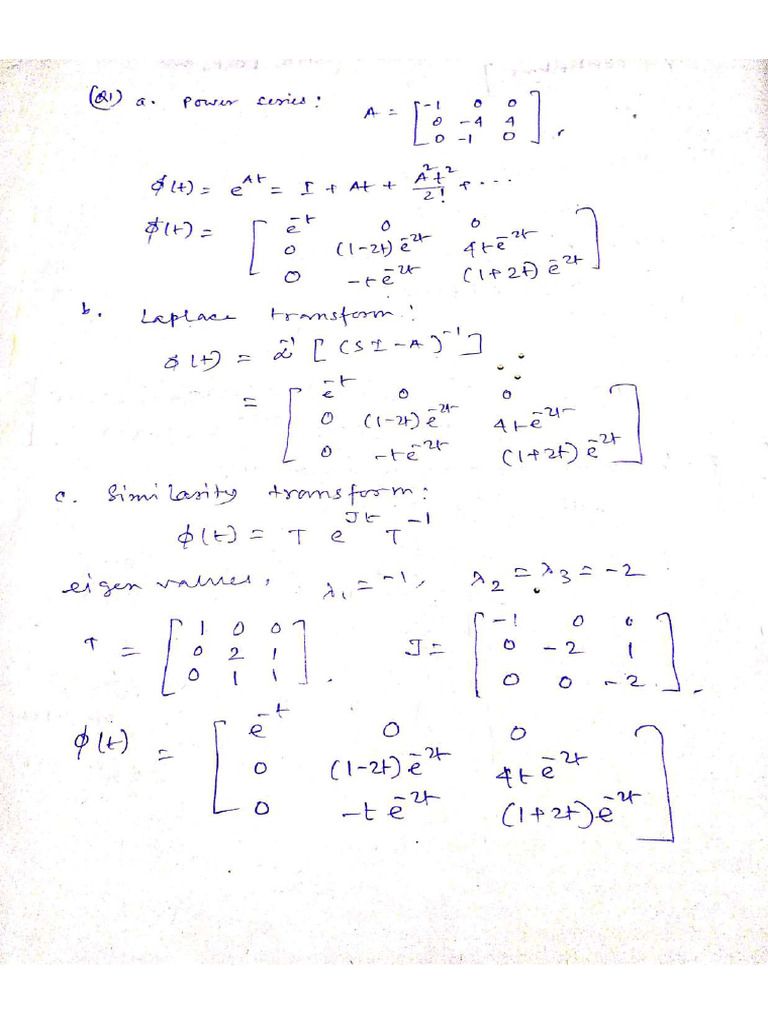 (Q1) a. Power series: A = [-1 0 0
0 -4 4
0 -1 0],
φ(t) = e^{At} = I + At + A²t²/2! + ...
φ(t) = [e^{-t} 0 0
0 (1-2t)e^{-2t} 4te^{-2t}
0 -te^{-2t} (1+2t)e^{-2t}]
b. Laplace transform:
φ(t) = L^{-1}[(SI-A)^{-1}]
= [e^{-t} 0 0
0 (1-2t)e^{-2t} 4te^{-2t}
0 -te^{-2t} (1+2t)e^{-2t}]
c. Similarity transform:
φ(t) = T e^{Jt} T^{-1}
eigen values, λ₁ = -1, λ₂ = λ₃ = -2
T = [1 0 0
0 2 1
0 1 1]. J = [-1 0 0
0 -2 1
0 0 -2].
φ(t) = [e^{-t} 0 0
0 (1-2t)e^{-2t} 4te^{-2t}
0 -te^{-2t} (1+2t)e^{-2t}]